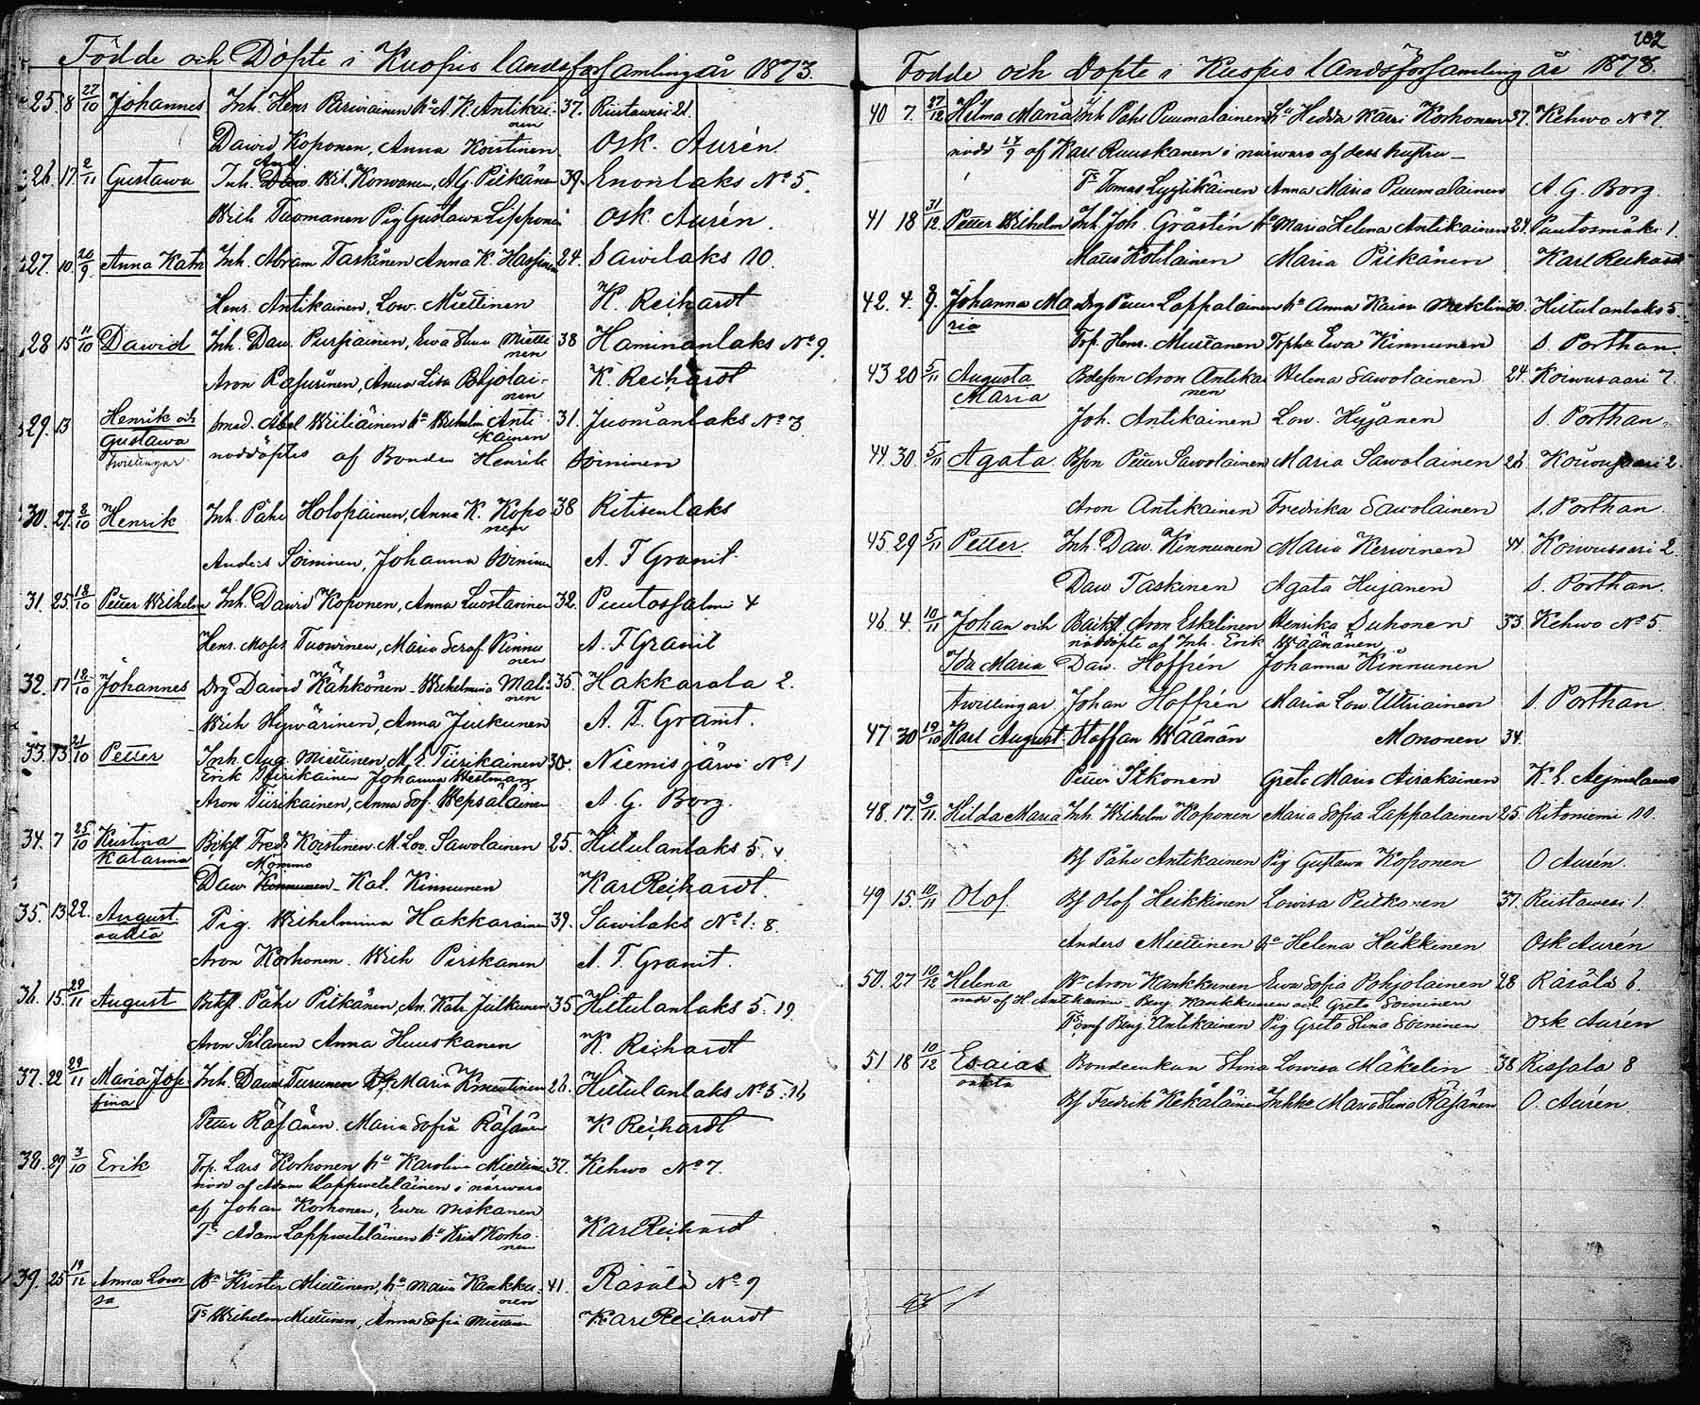 Födde och Döpte i Kuopio landsförsamling år 1873.
25. 8 27/10 Johannes Inh. Henr. h:u A. K. Antikai- 37. Riistavesi 21.
nen
Dawid Koponen, Anna Koistinen Osk. Aurén.
26. 17 2/11 Gustawa Inh. And. Wil. Korvonen, A. G. Pitkänen 39. Enonlaks No 5.
Wilh. Tuomanen Pig Gustawa Lipponen Osk. Aurén.
27. 10. 20/9. Anna Katr. Inh. Abram Taskinen Anna K. Hassinen 24. Sawilaks 10.
Henr. Antikainen, Low. Miettinen K. Reihardt
28 15 11/10 Dawid Inh. Daw. Pursiainen, Ewa Stina Mietti 38 Haminanlaks No 9.
nen
Aron Räsusinen, Anna Lisa Pohjolai- K. Reihardt
nen
29. 13 Henrik och Smed. Abel Wiiliäinen h:u Wilhelm. Anti 31. Juomanlaks No 3
Gustawa kainen
twillingar nöddöptes af Bonden Henrik Soininen
30. 27. 2/10 Henrik Inh. Påhl Holopainen, Anna K. Kopo 38 Ritisenlaks
nen
Anders Soininen, Johanna Soininen A. F Granit.
31. 25. 18/10 Petter Wilhelm Inh. Dawid Koponen, Anna Luostarinen 32. Puutossalmi 4
Henr. Moses Tuowinen, Maria Seraf. Kinnu A. F Granit
nen
32. 17 18/10 Johannes Drg Dawid Kähkönen Wilhelmina Mali- 35. Hakkarala 2.
nen
Wilh Hywärinen, Anna Juukunen A. F. Granit.
33. 13 21/10 Petter Inh. Aug. Miettinen, M. L. Tiirikainen 30. Niemisjärwi No 1
Erik Tiirikainen Johanna Westman
Aron Tiirikainen, Anna Sof. Wepsäläinen A. G. Borg.
34. 7 25/10 Kristina Fredr Koistinen M. Low. Sawolainen 25. Hiltulanlaks 5. 4
Katarina Mömmö
Daw. Kat. Kinnunen Karl Reihardt.
35. 13 22. August Pig. Wilhelmina Hakkarainen 39. Sawilaks No 1: 8.
oäkta
Aron Korhonen. Wilh Pirskanen A. F. Granit.
36. 15. 29/11 August Påhl Pitkänen, An. Kat. Julkunen 35 Hiltulanlaks 5. 19.
Aron Silanen Anna Huuskanen K. Reihardt
37. 22 29/11 Maria Jose Inh. Dawid Turunen Maria Kinnunen 26. Hiltulanlaks No 5. 16
fina
Petter Räsänen. Maria Sofia Räsänen K Reihardt
38. 29 3/10 Erik Torp. Lars Korhonen h:u Karolina Miettinen 37. Kehwo No 7.
nöd af Adam Lappweteläinen i närwaro
af Johan Korhonen, Ewa Niskanen
Ts Adam Lappweteläinen h:u Krist Korho- Karl Reihardt
nen
39. 25 19/12 Anna Lowi B:n Krister Miettinen, h:u Maria Kankku- 41. Räsälä No 9
sa nen
Ts Wilhelm Miettinen, Anna Sofia Miettinen Karl Reihardt
102
Födde och Döpte i Kuopio landsförsamling år 1873.
40 7. 27/12 Hilma Maria Inh Påhl Puumalainen h:u Hedda Karri Korhonen 37. Kehwo No 7.
nöds 17/9 af Karl Ruuskanen i närwaro af dess hustru
Ts Tomas Lyytikäinen Anna Maria Puumalainen A. G. Borg.
41 18 31/12 Petter Wilhelm Inh. Joh. Gråsten h:u Maria Helena Antikainen 24. Puutosmäki 1.
Matts Kotilainen Maria Pitkänen Karl Reihardt
42. 4. 2/9. Johanna Ma Drg Petter Lappalainen h:u Anna Kaisa Meeklin 30. Hiltulanlaks 5.
ria
Torp. Henr. Mustanen Torphu Ewa Kinnunen S. Porthan.
43 20 5/11 Augusta Bdeson Aron Antikai Helena Sawolainen 24. Koiwusaari 7.
Maria nen
Joh. Antikainen Low. Hujanen S. Porthan
44. 30. 5/11 Agata Bson Petter Sawolainen Maria Sawolainen 26 Koiwusaari 2.
Aron Antikainen Fredrika Sawolainen S. Porthan.
45 29 5/11 Petter Inh. Daw. Kinnunen Maria Kerwinen 44 Koiwusaari 2.
Daw Taskinen Agata Hujanen S. Porthan.
46. 4 10/11 Johan och Aron Eskelinen Henrika Suhonen 33. Kehwo No 5.
nöddöpte af Inh. Erik Wäänänen
Ida Maria Daw. Hoffrén Johanna Kinnunen
twillingar. Johan Hoffrén Maria Low Utriainen S. Porthan
47 30 19/10 Karl August Staffan Wäänän Mononen 34.
Petter Itkonen Greta Maria Airakainen K. E. Aejmelaeus
48. 17. 9/11. Hilda Maria Inh. Wilhelm Koponen Maria Sofia Lappalainen 25. Ritoniemi 10.
Bf Påhl Antikainen Pig Gustawa Koponen O Aurén.
49 15. 10/11 Olof. Bf Olof Heikkinen Lowisa Pulkonen 37. Riistawesi 1.
Anders Miettinen h:u Helena Heikkinen Osk Aurén
50. 27 10/12 Helena B:n Aron Kankkunen Ewa Sofia Pohjolainen 28 Räsälä 6.
nöd af H Antikainen Benj. Kankkunen och Greta Soininen
Benj. Antikainen Pig Greta Stina Soininen Osk Aurén
51 18 10/12 Esaias Bondeenkan Stina Lowisa Mäkelin 38 Rissala 8
oäkta
Bf Fredrik Kekäläinen Inhke Maria Stina Räsänen O. Aurén.